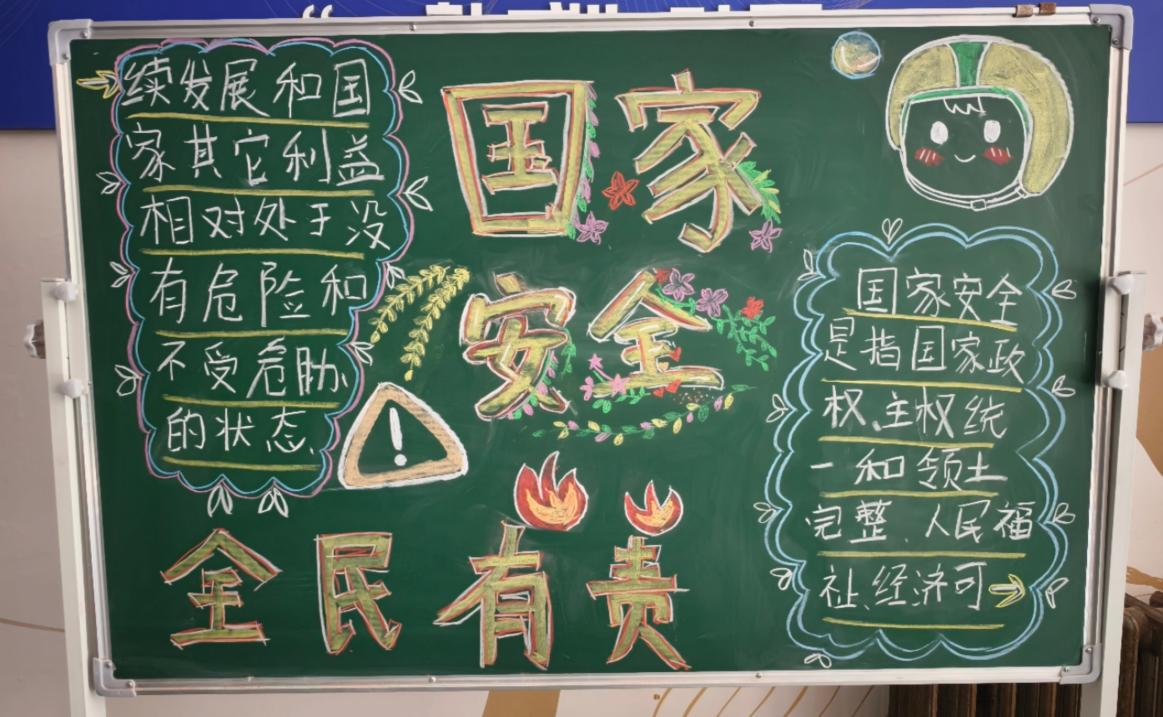 国家
安全
全民有责
国家安全
是指国家政
权、主权统
一和领土
完整、人民福
祉、经济可→
→续发展和国
家其它利益
相对处于没
有危险和
不受危胁
的状态、
!